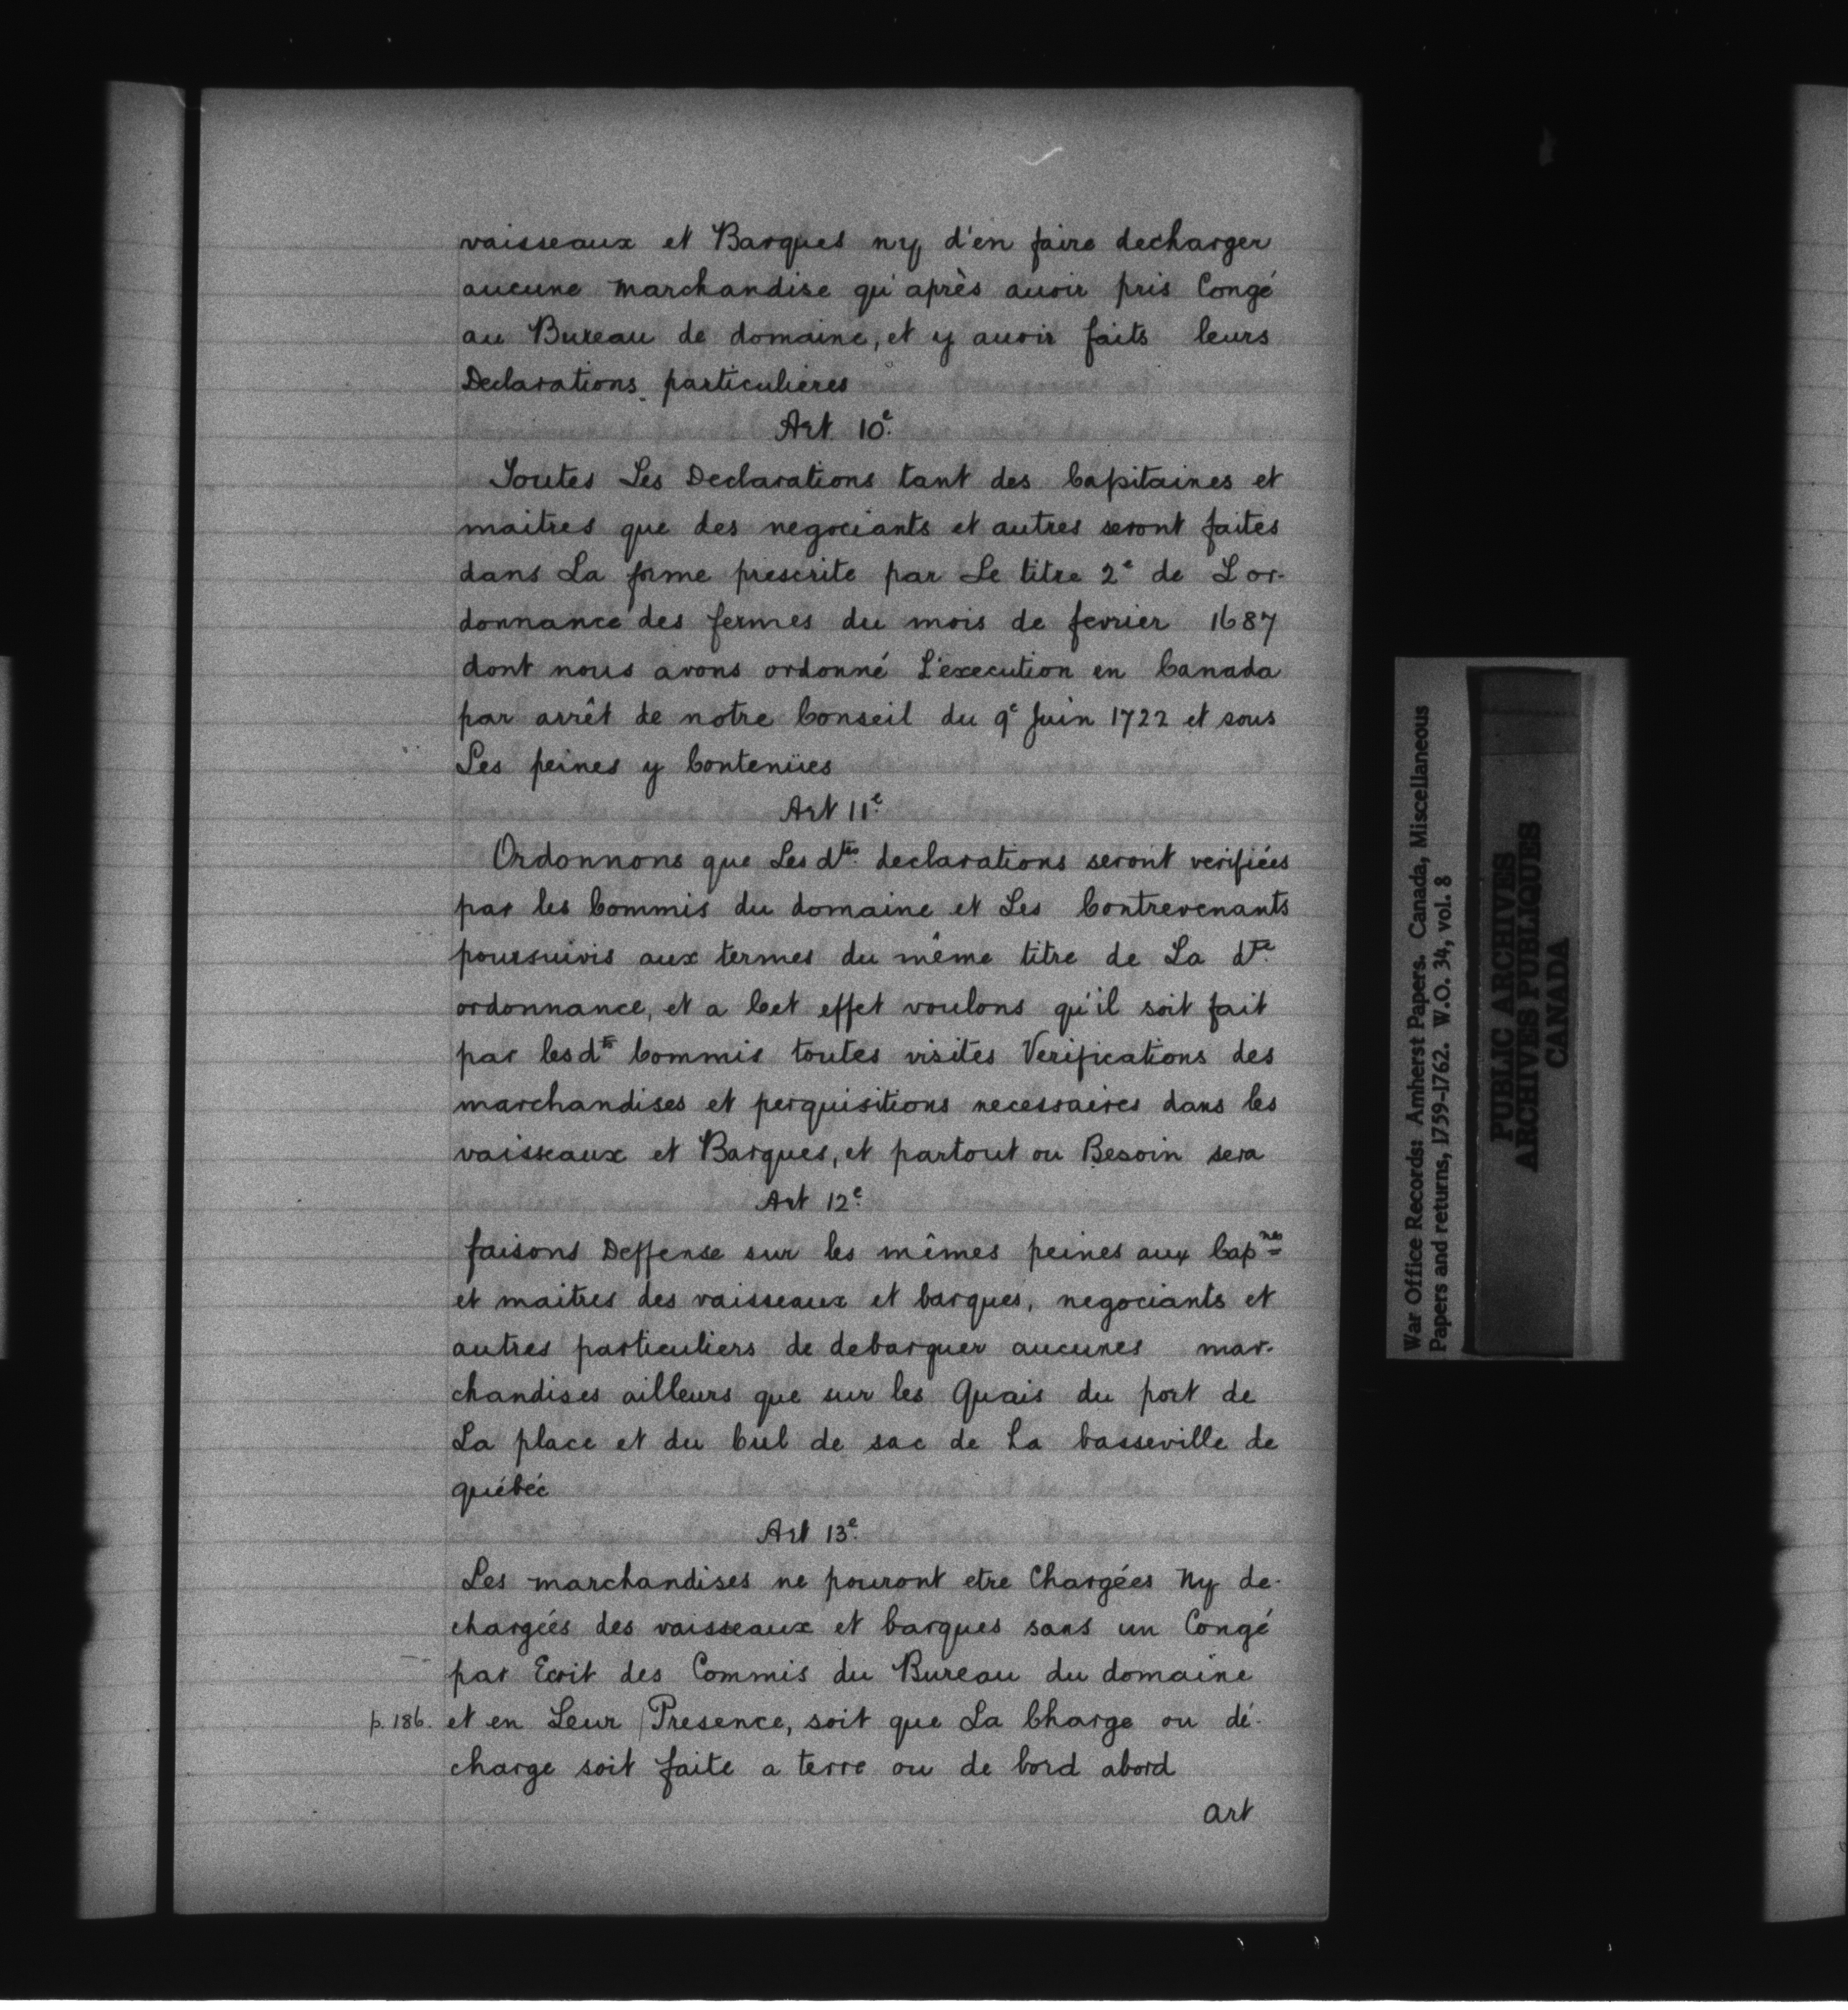 vaisseaux et Barques ny d'en faire decharger
aucune marchandise qu'après auoir pris Congé
au Bureau de domaine, et y auoir faits leurs
Declarations particulieres
Art 10e.
Toutes Les Declarations tant des Capitaines et
maitres que des negociants et autres seront faites
dans La forme prescrite par Le titre 2e de L or-
donnance des fermes du mois de fevrier 1687
dont nous avons ordonné L'execution en Canada
par arrêt de notre Conseil du 9e Juin 1722 et sous
Les peines y Contenües
Art 11e.
Ordonnons que Les dtes. declarations seront verifiées
par les Commis du domaine et Les Contrevenants
poursuivis aux termes du même titre de La dte.
ordonnance, et a Cet effet voulons qu'il soit fait
par les dts Commis toutes visites Verifications des
marchandises et perquisitions necessaires dans les
vaisseaux et Barques, et partout ou Besoin sera
Art 12e.
faisons Deffense sur les mêmes peines aux Capnes
et maitres des vaisseaux et barques, negociants et
autres particuliers de debarquer aucunes mar-
chandises ailleurs que sur les Quais du port de
La place et du Cul de sac de La basseville de
québéc
Art 13e.
Les marchandises ne pouront etre Chargées Ny de-
chargées des vaisseaux et barques sans un Congé
par Ecrit des Commis du Bureau du domaine
p. 186. et en Leur / Presence, soit que La Charge ou dé-
charge soit faite a terre ou de bord abord
art
War Office Records: Amherst Papers. Canada, Miscellaneous
Papers and returns, 1759-1762. W.O. 34, vol. 8
PUBLIC ARCHIVES
ARCHIVES PUBLIQUES
CANADA